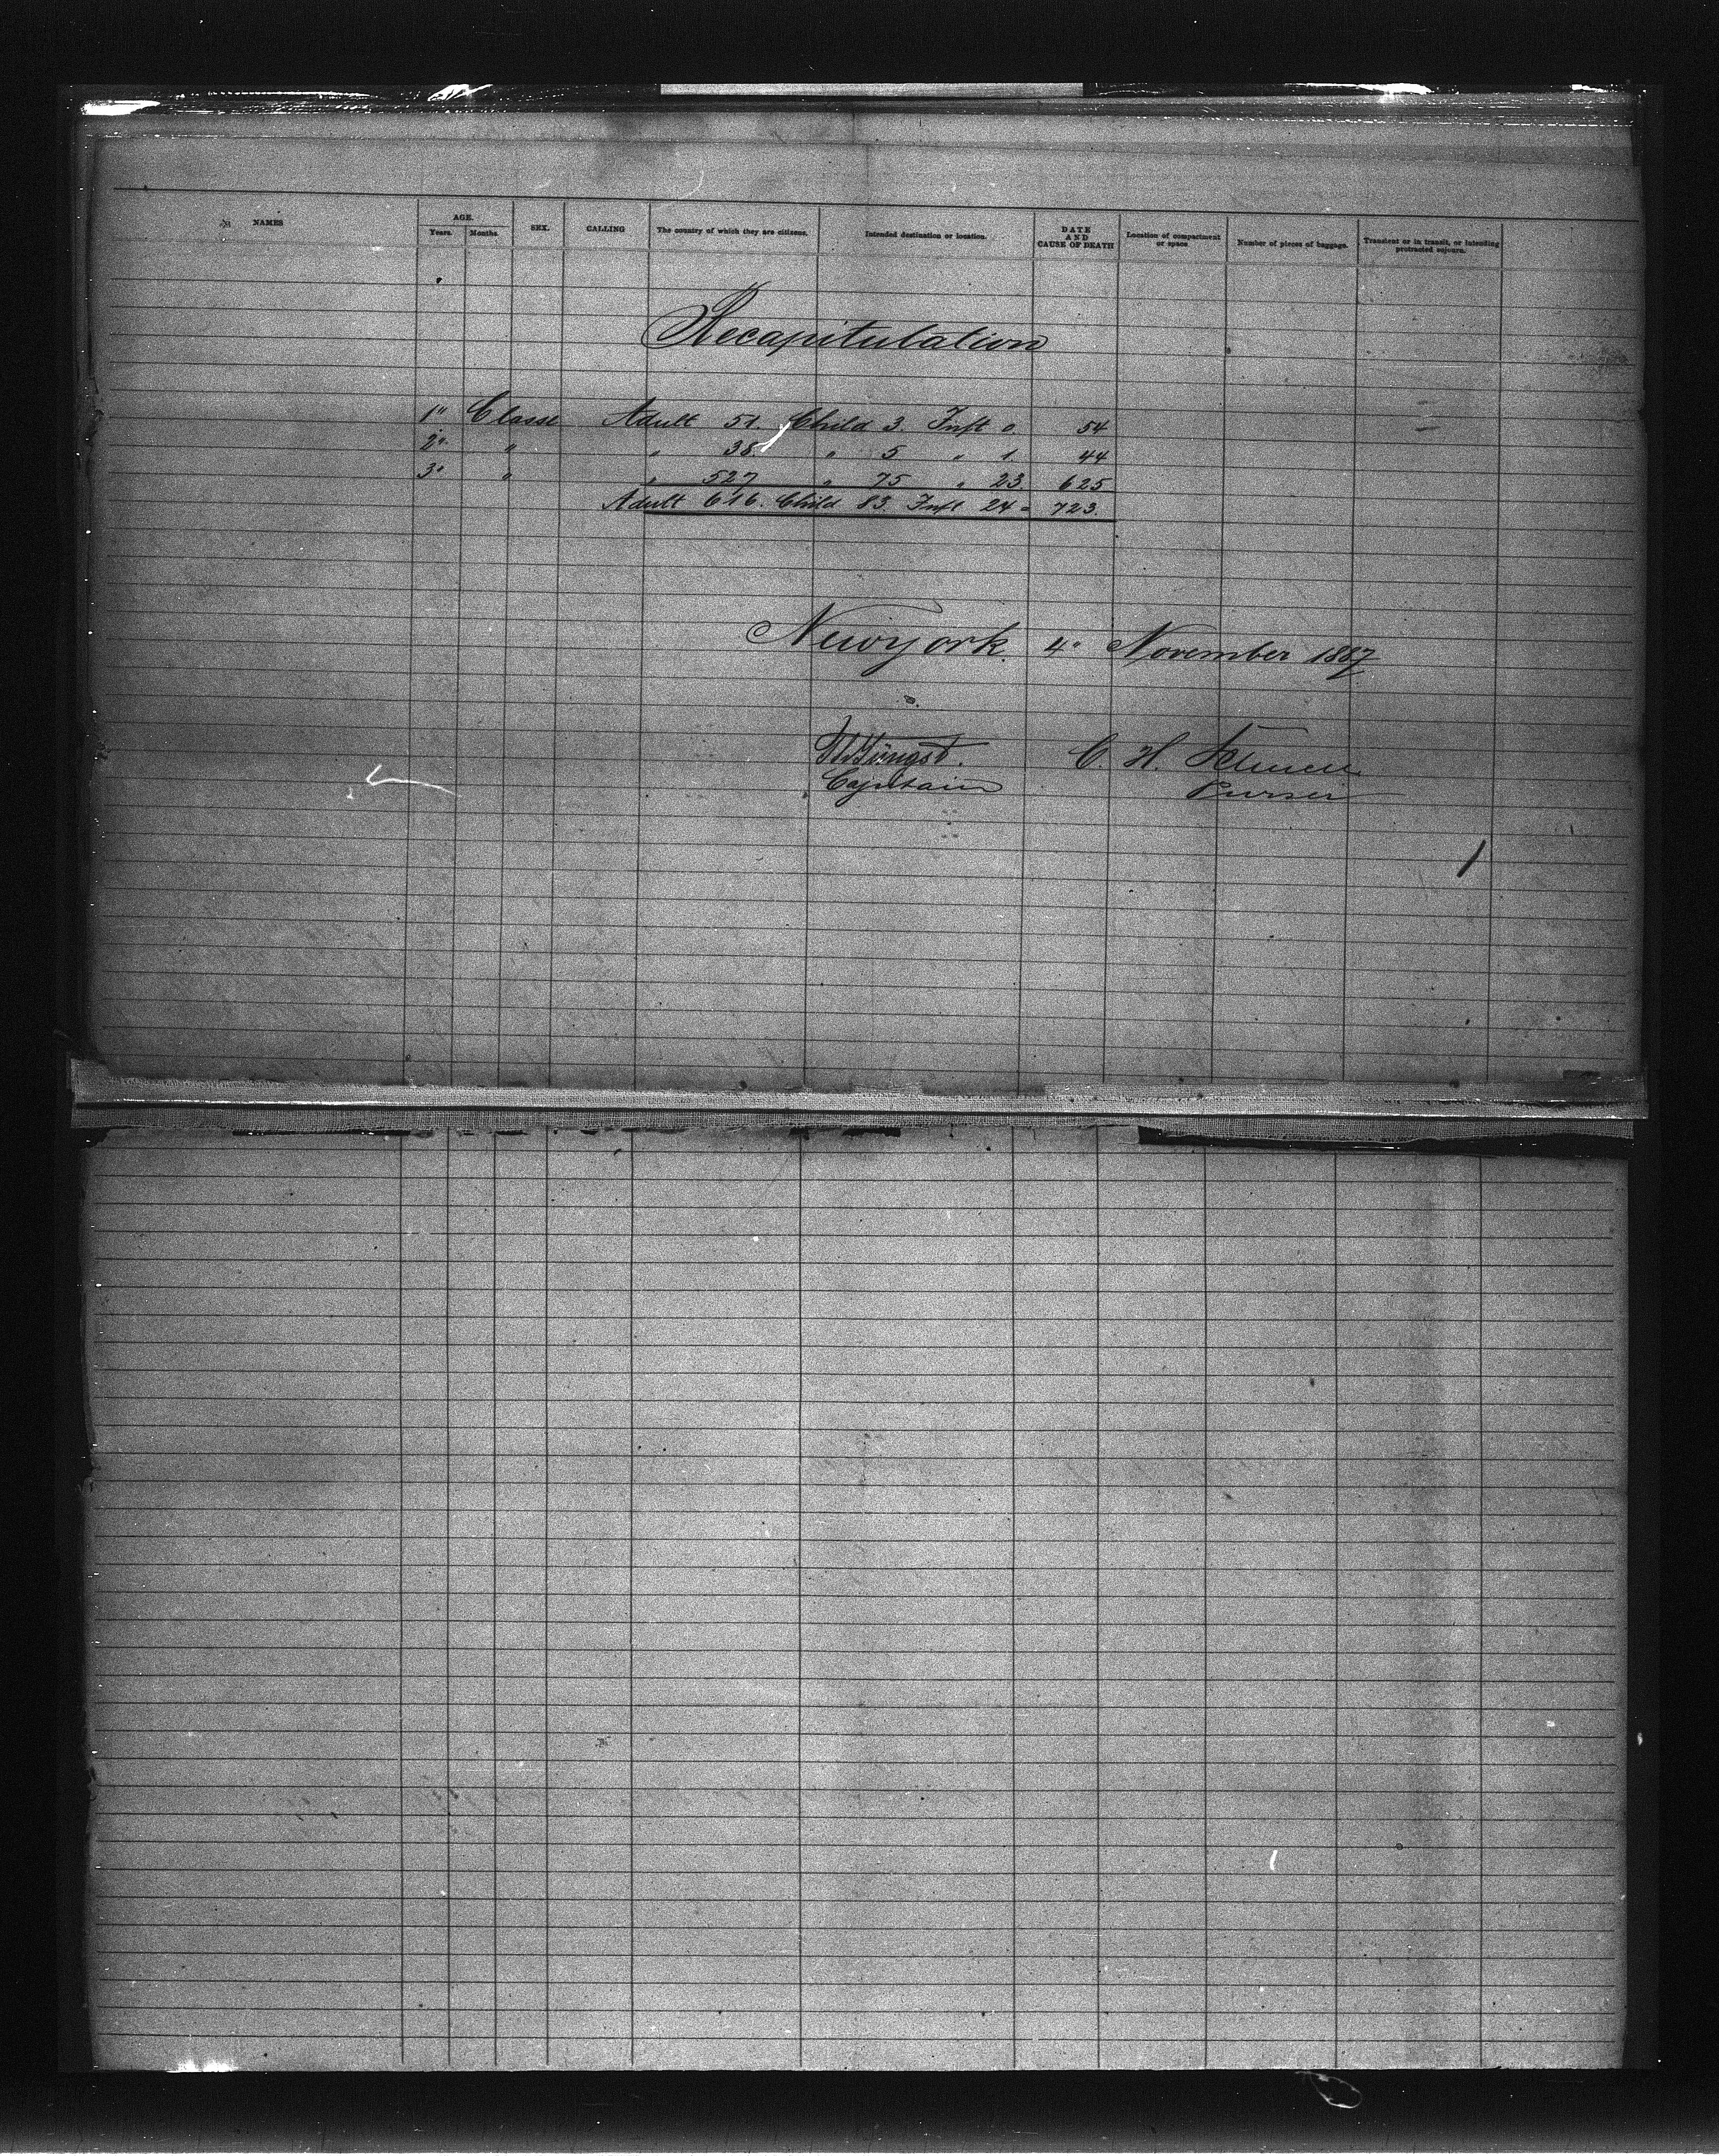 NAMES
AGE.
Years. Months.
SEX.
CALLING
The country of which they are citizens.
Intended destination or location.
DATE
AND
CAUSE OF DEATH
Location of compartment
or space
Number of pieces of baggage.
Transient or in transit, or intending
protracted sojourn.
Recapitulation
1" Classe Adult 51. Child 3. Inft 0. 54
2" " " 38 " 5 " 1 44
3" " " 527 " 75 " 23 625
Adult 616. Child 83. Inft 24 = 723.
Newyork. 4" November 1887
Jüngst. C. H.
Captain Purser